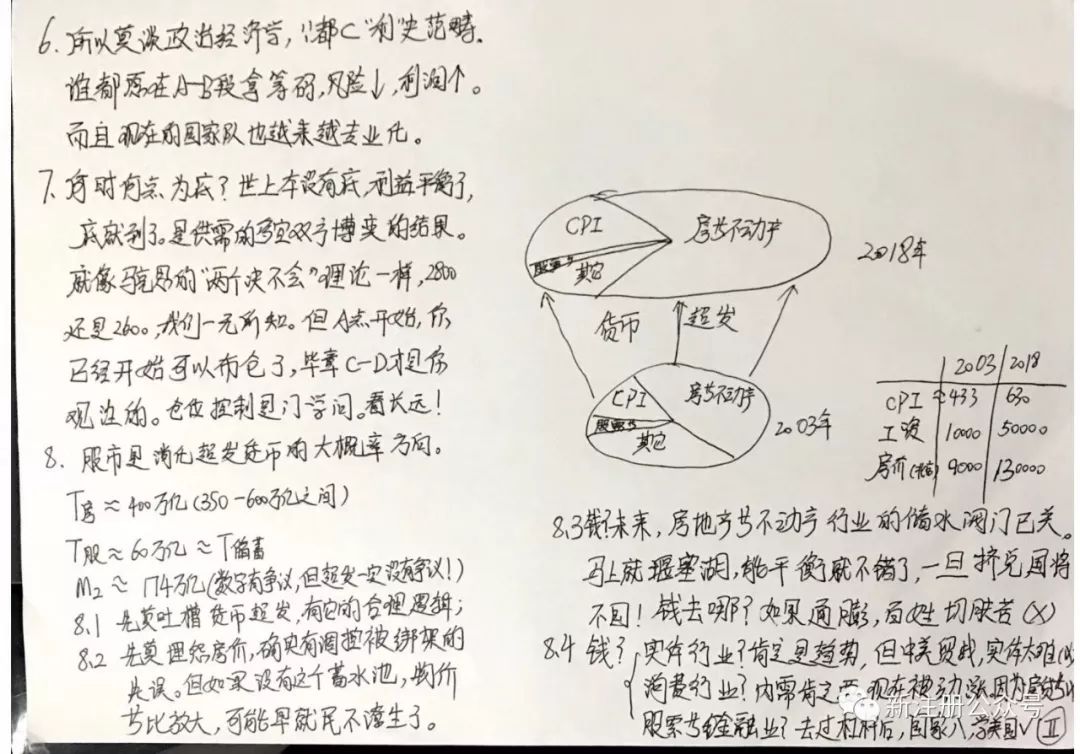 6. 所以莫谈政治经济学,都C"利"史范畴.
谁都愿在A-B段拿筹码,风险↓,利润↑。
而且现在的国家队也越来越专业化。
7. 何时何点为底?世上本没有底,利益平衡了,
底就到了。是供需的多空双方博弈的结果。
就像马克思的"两个决不会"理论一样,2800
还是2600,我们一无所知。但A点开始,你
已经开始可以布仓了,毕竟C-D才是你
观注的。仓位控制是门学问。看长远!
8. 股市是消化超发货币的大概率方向。
T房≈400万亿(350-600万亿之间)
T股≈60万亿≈T储蓄
M2≈174万亿(数字有争议,但超发一定没有争议!)
8.1 先莫吐槽货币超发,有它的合理逻辑;
8.2 先莫埋怨房价,确实有调控被绑架的
失误。但如果没有这个蓄水池,物价
占比放大,可能早就民不聊生了。
CPI
房与不动产
股票
其它
2018年
货币
超发
CPI
房与不动产
股票
其它
2003年
2003 2018
CPI ≈433 630
工资 1000 50000
房价 9000 130000
8.3 钱?未来,房地产与不动产行业的储水闸门已关。
马上就堰塞湖,能平衡就不错了,一旦挤兑用将
不回!钱去哪?如果通膨,百姓切肤苦(X)
8.4 钱? 实体行业?肯定是趋势,但中美贸战,实体太难
消费行业?内需肯定要,现在被动涨,因为房
股票与金融业?去过杠杆后,国家 学美国√ Ⅱ
新注册公众号